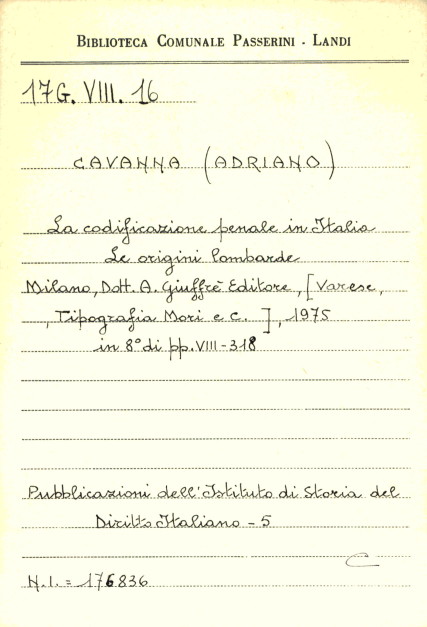 BIBLIOTECA COMUNALE PASSERINI - LANDI
17G. VIII. 16
CAVANNA (ADRIANO)
La codificazione penale in Italia
Le origini lombarde
Milano, Dott. A. Giuffrè Editore, [Varese,
, Tipografia Mori e C. ], 1975
in 8° di pp. VIII-318
Pubblicazioni dell'Istituto di Storia del
Diritto Italiano - 5
C
N.I. = 176836